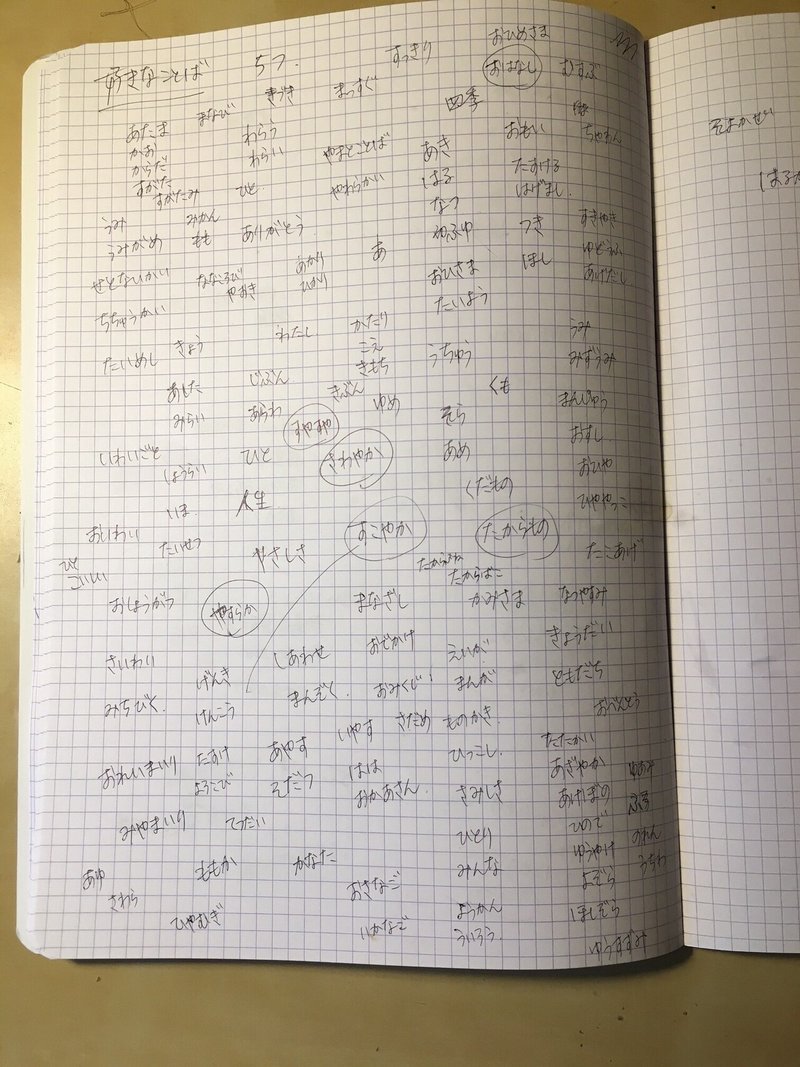 好きなことば
5つ.
すっきり
おひめさま
まなび
きづき
まっすぐ
おはなし
むすぶ
四季
あたま
かお
からだ
すがた
すがたみ
わらう
わらい
ひと
やまとことば
やわらかい
あき
はる
なつ
ふゆ
おもい
ちゃわん
たすける
はげまし.
うみ
うみがめ
みかん
もも
ありがとう.
あ
つき
ほし
すきやき
ゆどうふ
あげだし
せとないかい
ななころび
やおき
あかり
ひかり
おひさま
たいよう
ちちゅうかい
わたし
かたり
こえ
きもち
うちゅう
うみ
みずうみ
たいめし
きょう
あした
みらい
じぶん
きぶん
あらわ
すやすや
ゆめ
そら
くも
まんじゅう
おすし
いわいごと
しょうらい
ひと
さわやか
あめ
おひや
ひややっこ
くだもの
いま.
人生
おいわい
たいせつ
やさしさ
すこやか
たからもの
たこあげ
たからばこ
おしょうがつ
やすらか
まなざし
かみさま
なつやすみ
さいわい
しあわせ
おでかけ
えいが
きょうだい
げんき
みちびく.
けんこう
まんぞく.
おみくじ!
まんが
ともだち
いやす
さだめ
ものかき.
おべんとう
おれいまいり
たすけ
よろこび
あやす
そだつ
はは
おかあさん.
ひっこし.
さみしさ
たたかい
あざやか
あけぼの
ゆあみ
みやまいり
てつだい
ひとり
ひので
ゆうやけ
のれん
うちわ
あゆ
さわら
ももか
かなた
おさなご
みんな
よぞら
ひやむぎ
いかなご
ようかん
ういろう.
ほしぞら
ゆうすずみ
そよかぜ